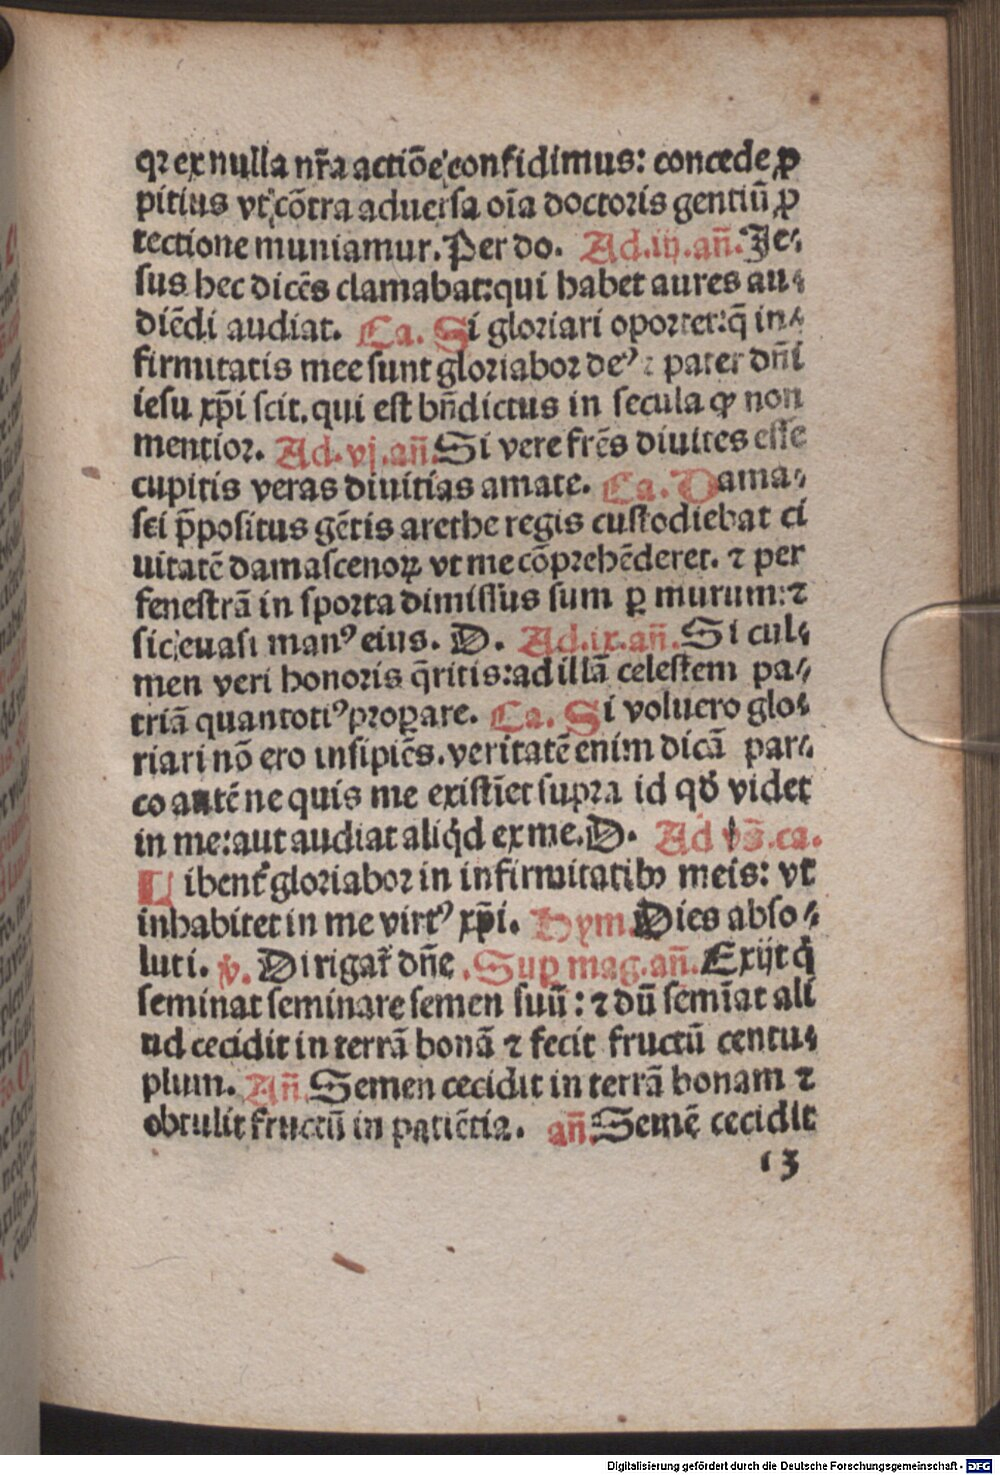 qꝛ ex nulla nr̃a actiõe confidimus: concede ꝓ
pitius vt cõtra aduersa oĩa doctoris gentiũ ꝓ
tectione muniamur. Per do. Ad.iij.añ. Je⸗
sus hec dicẽs clamabat: qui habet aures au⸗
diẽdi audiat. Ca. Si gloriari oportet: q̃ in⸗
firmitatis mee sunt gloriabor deꝰ ⁊ pater dñi
iesu xp̃i scit. qui est bñdictus in secula ꝙ non
mentior. Ad.vj.añ. Si vere frẽs diuites esse
cupitis veras diuitias amate. Ca. Dama⸗
sci p̃positus gẽtis arethe regis custodiebat ci
uitatẽ damascenoꝝ vt me cõprehẽderet. ⁊ per
fenestrã in sporta dimissus sum ꝑ murum: ⁊
sic euasi manꝰ eius. D. Ad.ix.añ. Si cul⸗
men veri honoris q̃ritis: ad illã celestem pa⸗
triã quantotiꝰ proꝑare. Ca. Si voluero glo⸗
riari nõ ero insipiẽs. veritatẽ enim dicã par⸗
co autẽ ne quis me existĩet supra id qđ videt
in me: aut audiat aliq̇d ex me. D. Ad vs̃.ca.
Libent᷑ gloriabor in infirmitatibꝫ meis: vt
inhabitet in me virtꝰ xp̃i. Hym. Dies abso⸗
luti. v̷. Dirigat᷑ dñe. Suꝑ mag.añ. Exijt q̇
seminat seminare semen suũ: ⁊ dũ semĩat ali
ud cecidit in terrã bonã ⁊ fecit fructũ centu⸗
plum. Añ. Semen cecidit in terrã bonam ⁊
obtulit fructũ in patiẽtia. añ. Semẽ cecidit
13
Digitalisierung gefördert durch die Deutsche Forschungsgemeinschaft - DFG